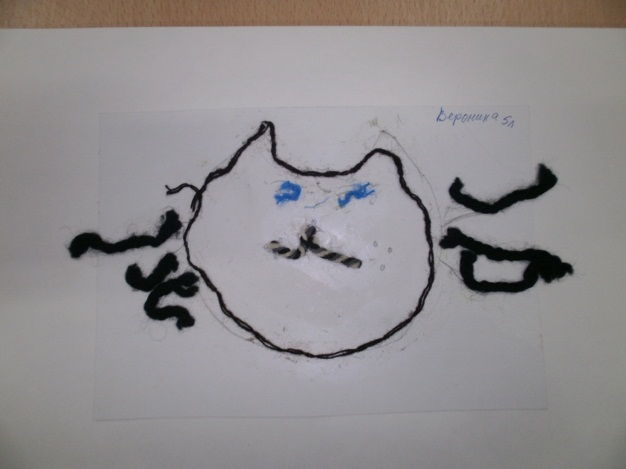 Вероника 5л